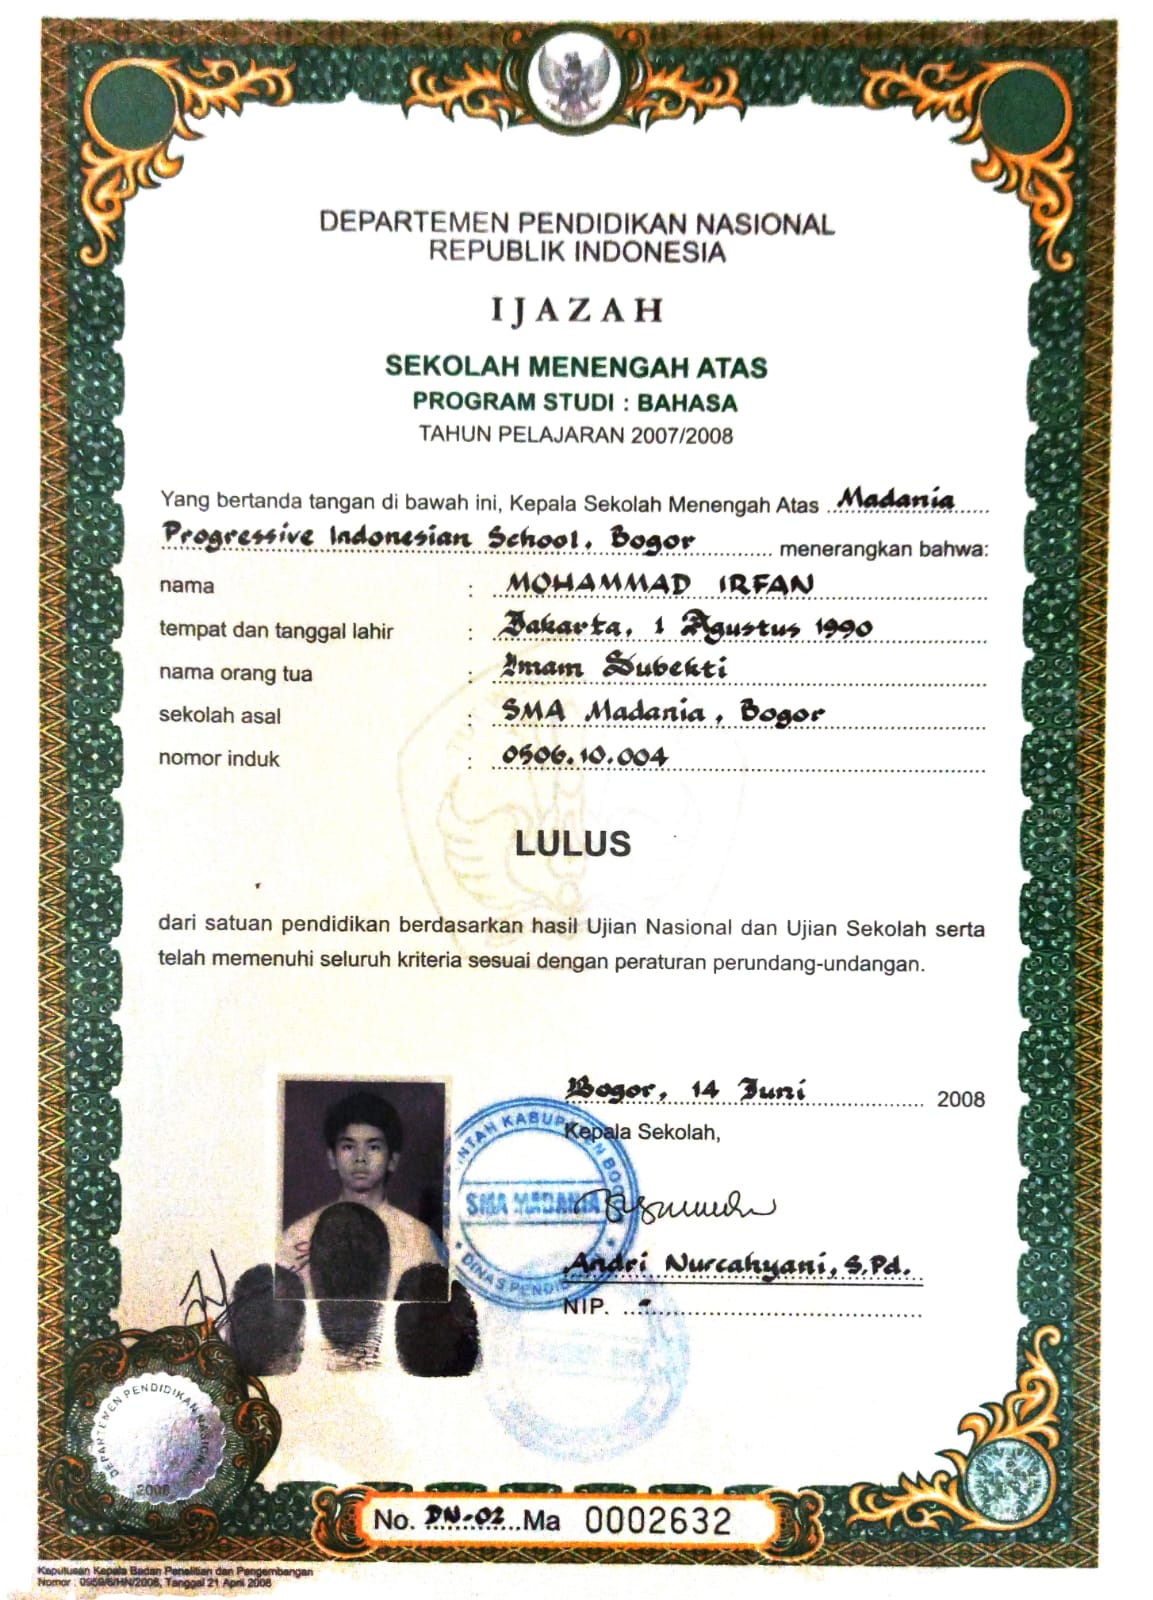 DEPARTEMEN PENDIDIKAN NASIONAL
REPUBLIK INDONESIA
IJAZAH
SEKOLAH MENENGAH ATAS
PROGRAM STUDI : BAHASA
TAHUN PELAJARAN 2007/2008
Yang bertanda tangan di bawah ini, Kepala Sekolah Menengah Atas Madania
Progressive Indonesian School, Bogor menerangkan bahwa:
nama : MOHAMMAD IRFAN
tempat dan tanggal lahir : Jakarta, 1 Agustus 1990
nama orang tua : Imam Subekti
sekolah asal : SMA Madania, Bogor
nomor induk : 0506.10.004
LULUS
dari satuan pendidikan berdasarkan hasil Ujian Nasional dan Ujian Sekolah serta
telah memenuhi seluruh kriteria sesuai dengan peraturan perundang-undangan.
Bogor, 14 Juni 2008
Kepala Sekolah,
SMA MADANIA
Andri Nurcahyani, S.Pd.
NIP. -
DEPARTEMEN PENDIDIKAN NASIONAL
2008
No. DN-02 Ma 0002632
Keputusan Kepala Badan Penelitian dan Pengembangan
Nomor : 0959/6/HN/2008, Tanggal 21 April 2008